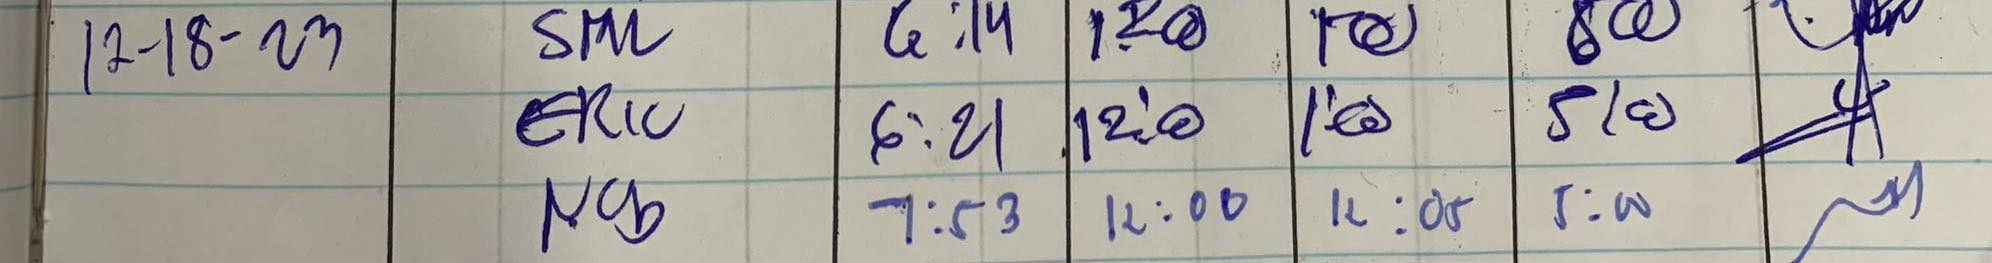 12-18-23 SML 6:14 12:00 1:00 5:00
ERIC 6:21 12:00 1:00 5:00
NGB 7:53 12:00 12:05 5:00